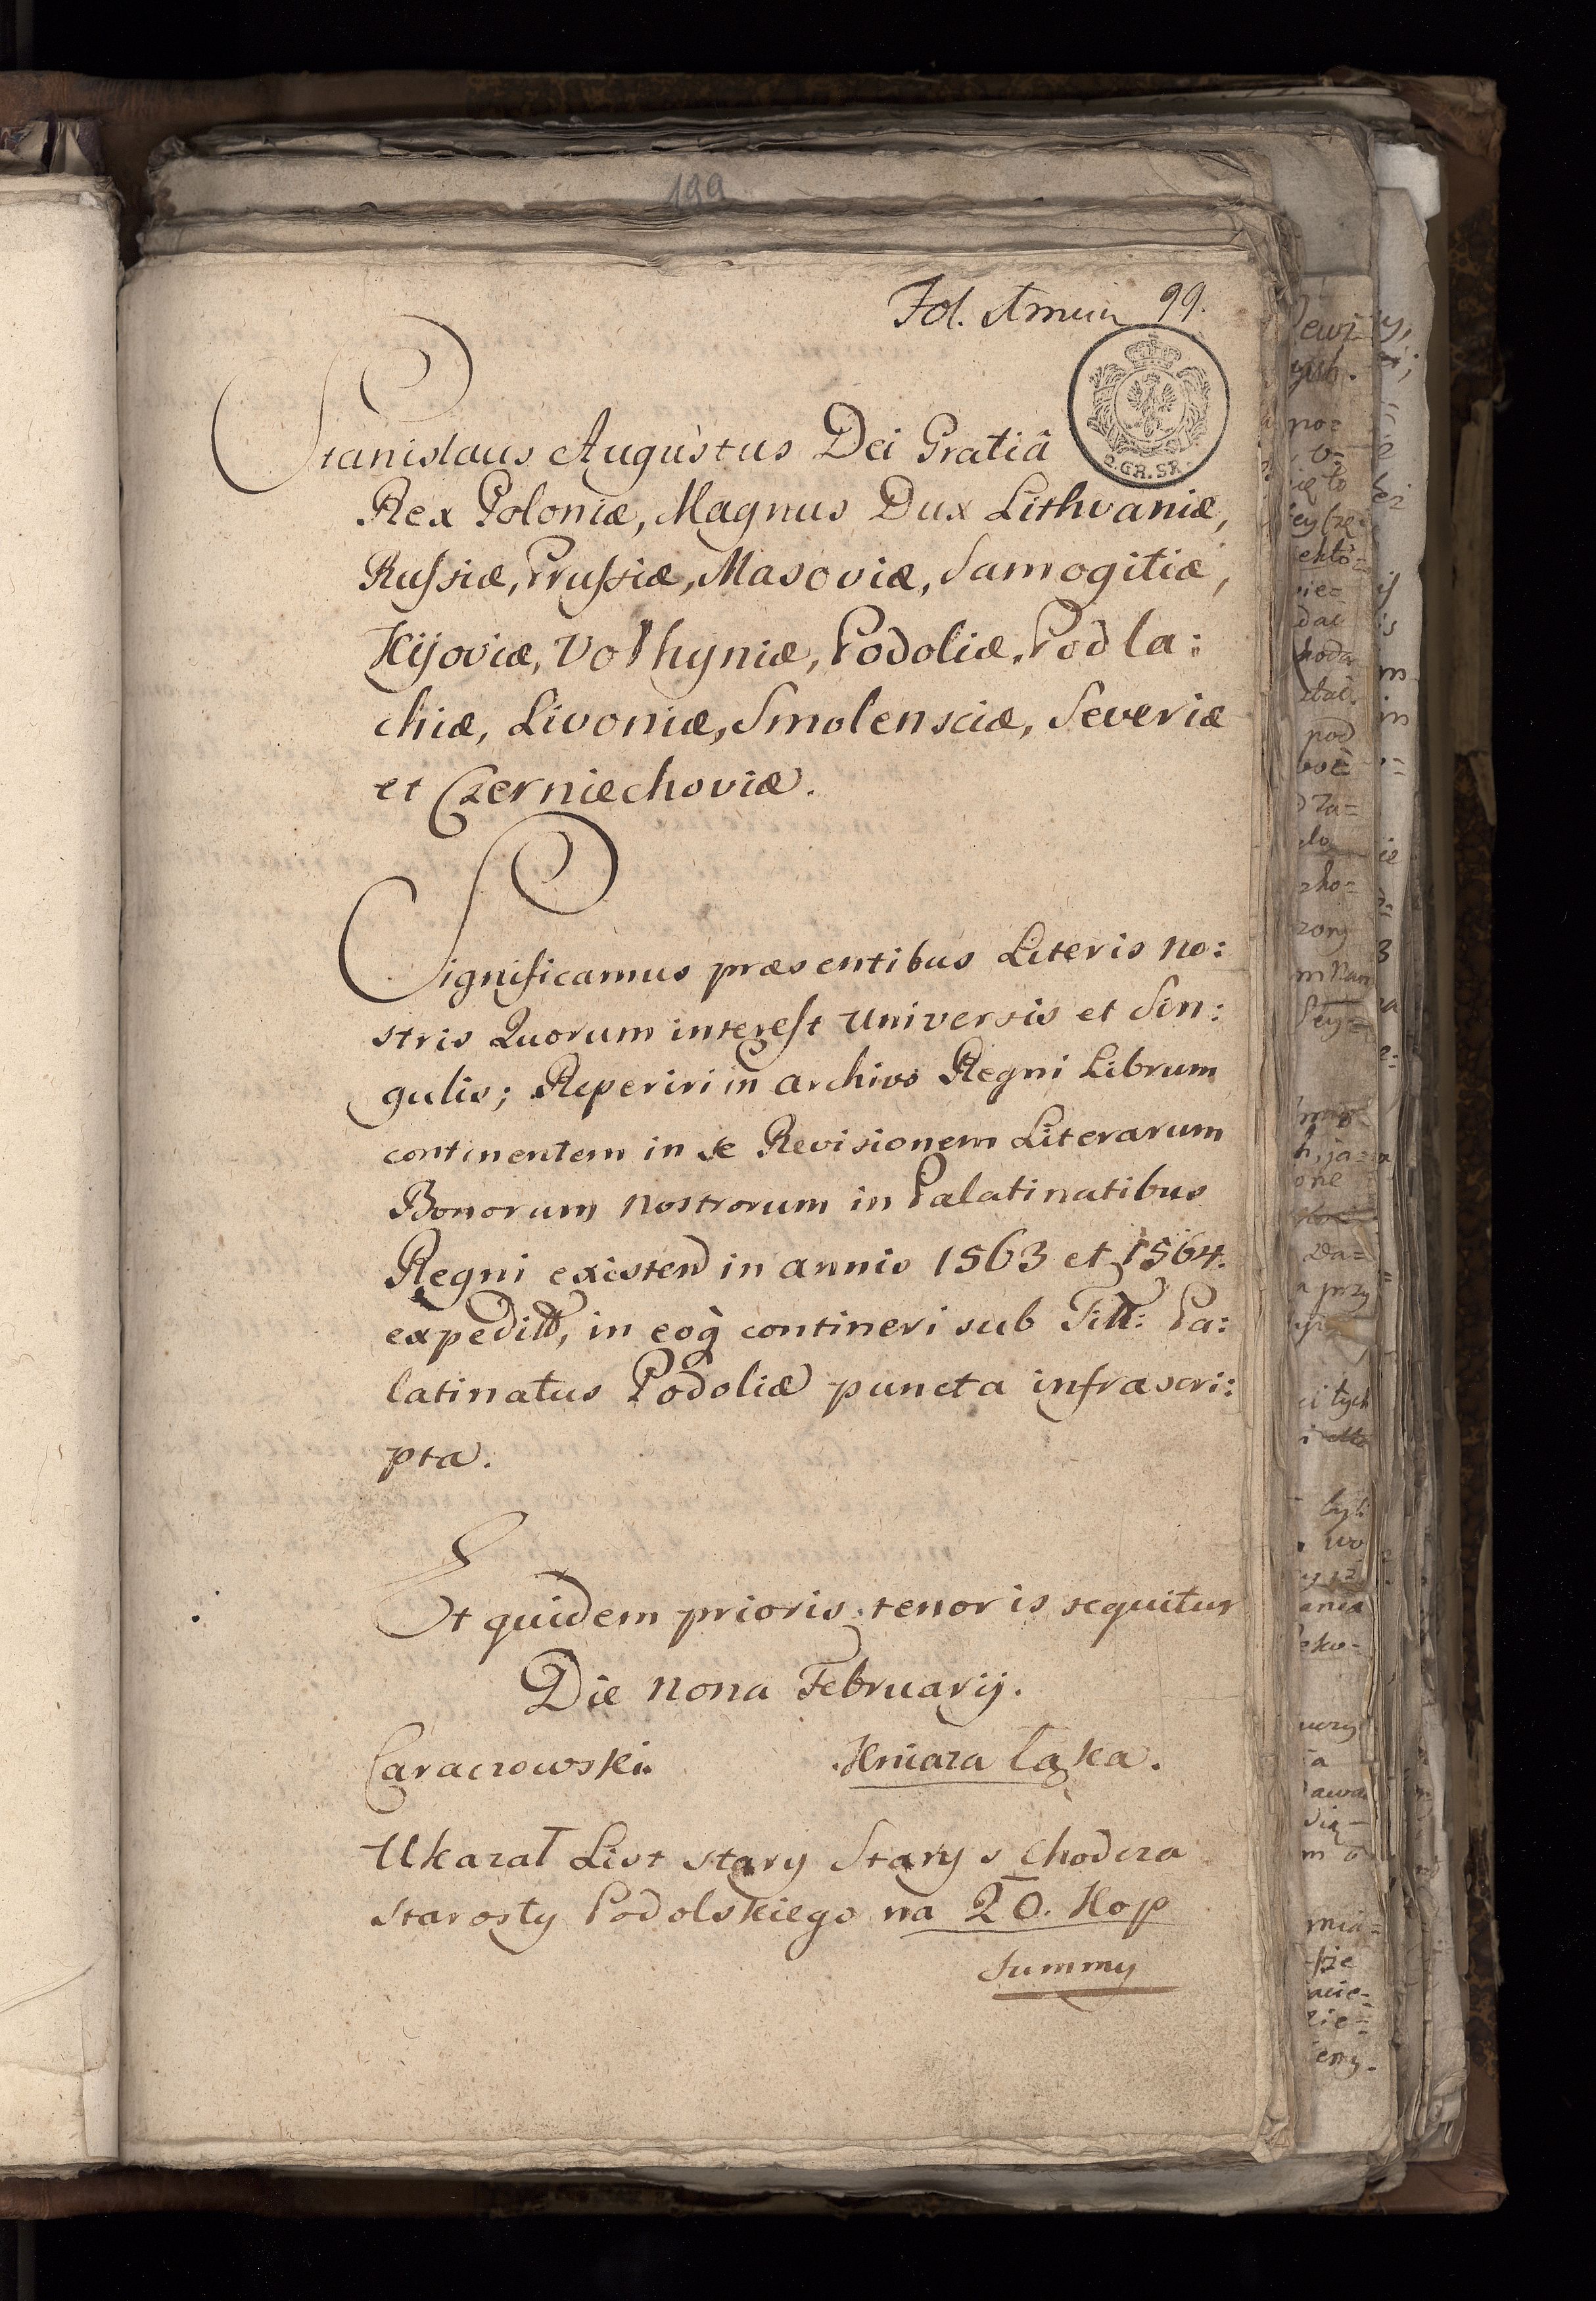 199
Fol. 99.
2. GR. SR.
Stanislaus Augustus Dei Gratiâ
Rex Poloniæ, Magnus Dux Lithvaniæ,
Rußiæ, Prußiæ, Masoviæ, Samogitiæ,
Kijoviæ, Volhyniæ, Podoliæ, Podla:
chiæ, Livoniæ, Smolensciæ, Severiæ
et Czerniechoviæ.
Significamus præsentibus Literis no:
stris Quorum interest Universis et Sin:
gulis; Reperiri in Archivo Regni Librum
continentem in se Revisionem Literarum
Bonorum Nostrorum in Palatinatibus
Regni existen in annis 1563 et 1564.
expeditt, in eoq̀ contineri sub Titt: Pa:
latinatus Podoliæ puncta infrascri:
pta.
Et quidem prioris tenoris sequitur
Die nona Februarij.
Caraczowski. Kniaza Łąka.
Ukazał List stary Stary s Chodcza
starosty Podolskiego na 20. Kop
Summy